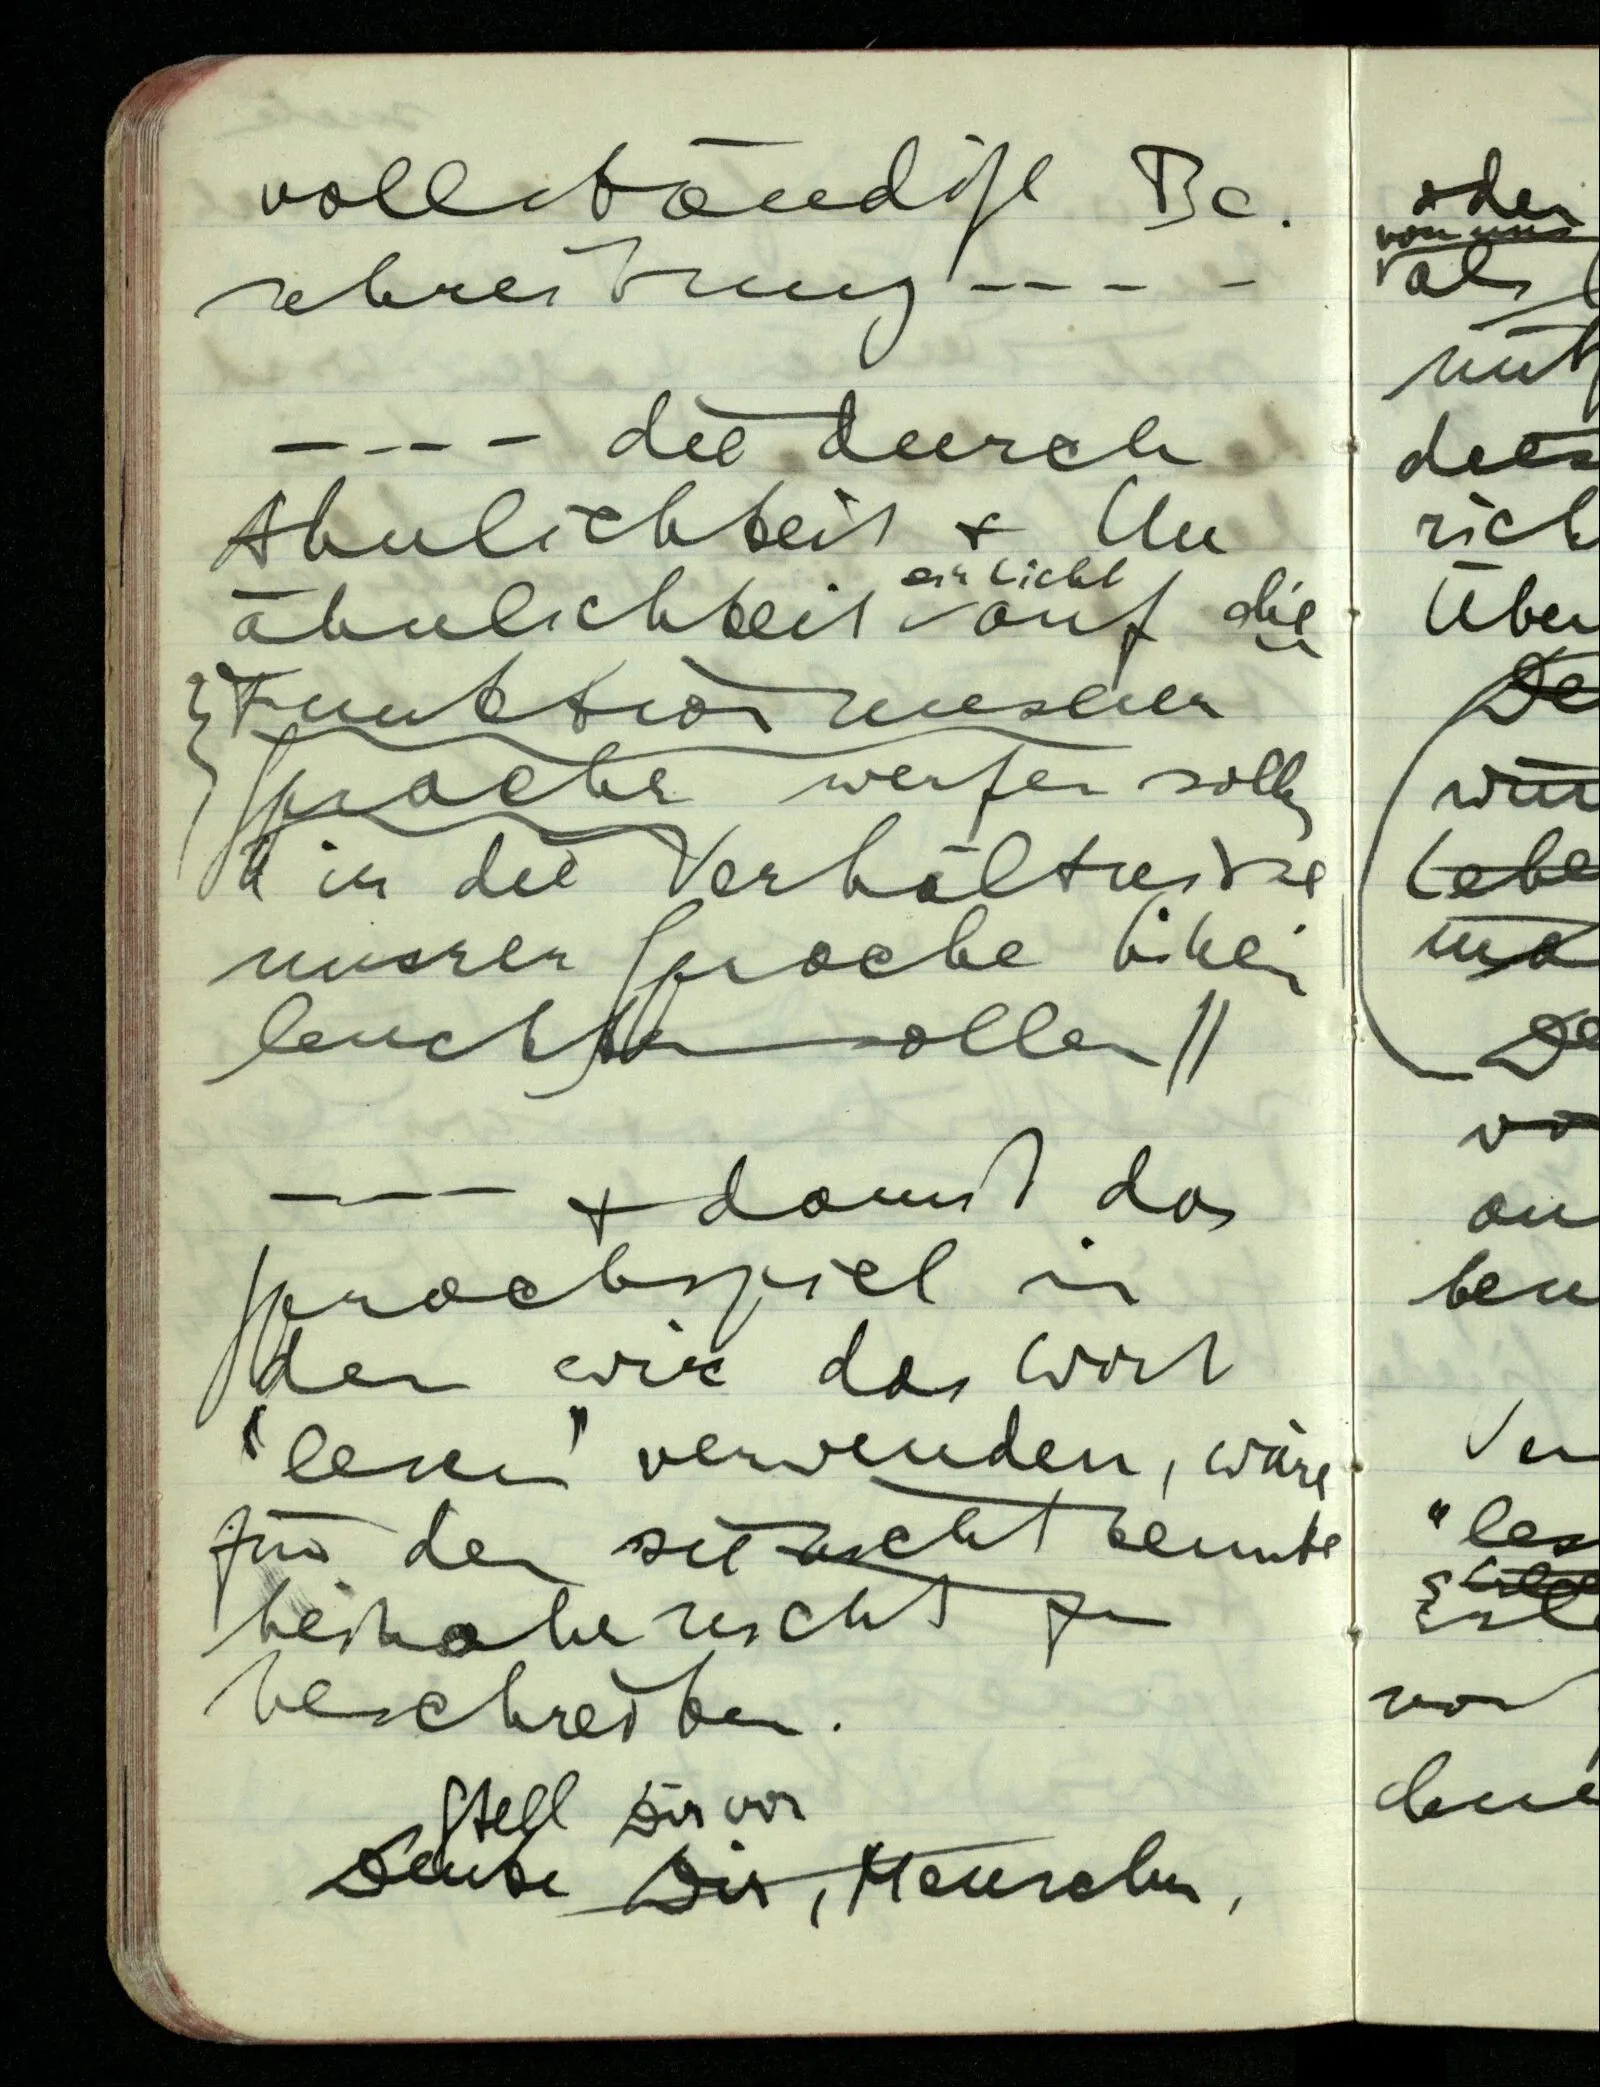 vollständige Be-
schreibung ----
---- die durch
Ähnlichkeit & Un
ähnlichkeit ein Licht auf die
Funktion unserer
Sprache werfen sollen
// in die Verhältnisse
unsrer Sprache hinein
leuchten sollen //
---- & damit das
Sprachspiel in
dem wir das Wort
"lesen" verwenden, wäre
für den der es nicht kennte
beinahe nicht zu
beschreiben.
Stell Dir vor
Denke Dir, Menschen,
oder
von uns
als
mit
dies
rich
Über
De
wür
Lebe
De
vo
an
ben
Ver
"les
vor